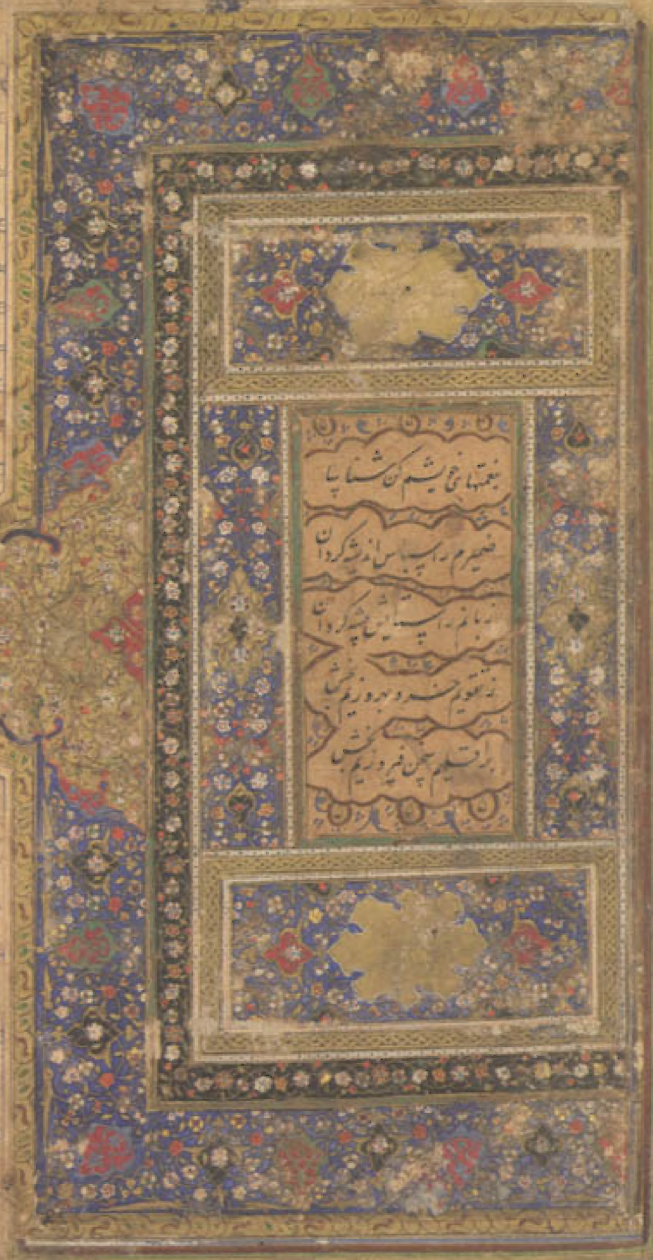 بنعمتهای خویشم کن شناسا
ضمیرم را سپاس اندیشه گردان
زبانم را ستایش پیشه گردان
به تقویم خرد بهروزیم بخش
بر اقلیم سخن فیروزیم بخش